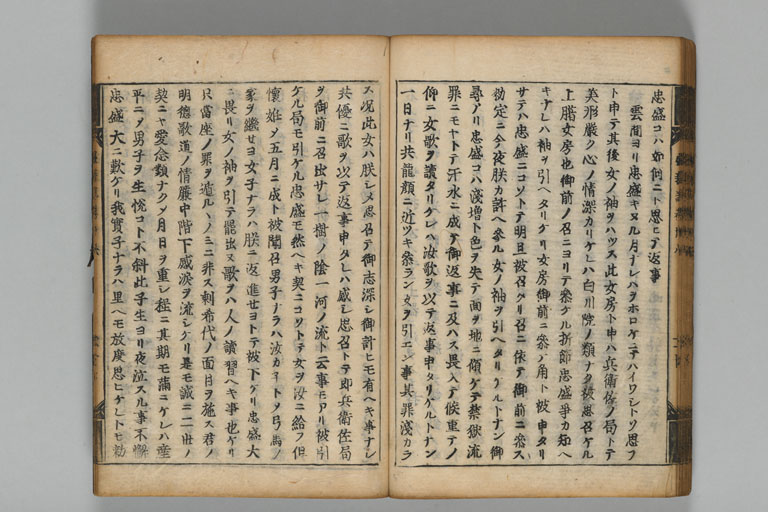 忠盛コハ如何ニト思ヒテ返事
雲間ヨリ忠盛キヌル月ナレハヲホロケニテハイワシトソ思フ
ト申テ其後女ノ袖ヲハツス此女房ト申ハ兵衛佐ノ局トテ
美形厳ク心ノ情深カリケレハ白川院ノ類ナク被思召ケル
上臈女房也御前ノ召ニヨリテ参ケル折節忠盛争カ知ヘ
キナレハ袖ヲ引ヘタリケリ女房御前ニ参ノ角ト被申タリ
サテハ忠盛ニコソトテ明旦被召クリ召ニ依テ御前ニ参ス
勅定ニ今夜朕カ許ヘ参ル女ノ袖ヲ引ヘタリケルトナン御
尋アリ忠盛コハ浅増ト色ヲ失テ面ヲ地ニ傾ケテ禁獄流
罪ニモヤトテ汗水ニ成テ御返事ニ及ハス畏入テ候重テノ
仰ニ女歌ヲ讀タリケレハ汝歌ヲ以テ返事申タリケルトナン
一日ナリ共龍顔ニ近ツキ参ラン女ヲ引エン事其罪浅カラ
ス况此女ハ朕シメ思召テ御志深シ御計ヒモ有ヘキ事ナレ
共優ニ歌ヲ以テ返事申タレハ感シ思召トテ即兵衛佐局
ヲ御前ニ召出サレ一樹ノ陰一河ノ流ト云事モアリ被引
ケル局モ引ケル忠盛モ然ヘキ契ニコソトテ女ヲ汝ニ給フ但
懐姙ノ五月ニ成ト被聞召男子ナラハ汝カ子トノ弓馬ノ
家ヲ継セヨ女子ナラハ朕ニ返進セヨトテ被下ケリ忠盛大
ニ畏リ女ノ袖ヲ引テ罷出ヌ歌ヲハ人ノ讀習ヘキ事也ケリ
只當座ノ罪ヲ遁ルヽノミニ非ス剰希代ノ面目ヲ施ス君ノ
明徳歌道ノ情簾中階下感涙ヲ流シケリ是モ誠ニ二世ノ
契ニヤ愛念類ナクノ月日ヲ重シ程ニ其期モ満ニケレハ産
平ニノ男子ヲ生悦コト不斜此子生ヨリ夜泣スル事不懈
忠盛大ニ歎ケリ我實子ナラハ里ヘモ放度思ヒケレトモ勅